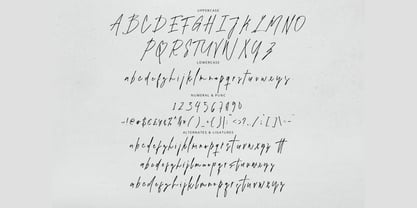 UPPERCASE
ABCDEFGHIJKLMNO
PQRSTUVWXYZ
LOWERCASE
abcdefghijklmnopqrstuvwxyz
NUMERAL & PUNC
1234567890
ALTERNATES & LIGATURES
abcdefghijklmnopqrstuvwxyz tt
abcdefghijklmnopqrstuvwxyz
abcdefghijklmnopqrstuvwxyz